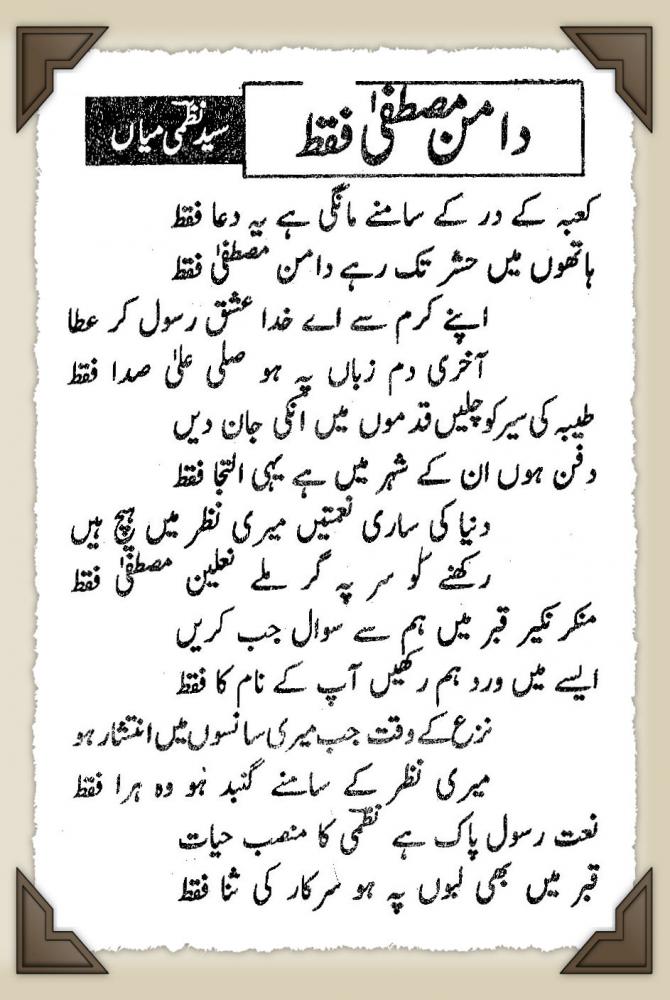 دامن مصطفیٰ فقط
سید نظمی میاں
کعبہ کے در کے سامنے مانگی ہے یہ دعا فقط
ہاتھوں میں حشر تک رہے دامن مصطفیٰ فقط
اپنے کرم سے اے خدا عشق رسول کر عطا
آخری دم زباں پہ ہو صلی علیٰ صدا فقط
طیبہ کی سیر کو چلیں قدموں میں انکی جان دیں
دفن ہوں ان کے شہر میں ہے یہی التجا فقط
دنیا کی ساری نعمتیں میری نظر میں ہیچ ہیں
رکھنے کو سر پہ گر ملے نعلین مصطفیٰ فقط
منکر نکیر قبر میں ہم سے سوال جب کریں
ایسے میں ورد ہم رکھیں آپ کے نام کا فقط
نزع کے وقت جب میری سانسوں میں انتشار ہو
میری نظر کے سامنے گنبد ہو وہ ہرا فقط
نعت رسول پاک ہے نظمی کا منصب حیات
قبر میں بھی لبوں پہ ہو سرکار کی ثنا فقط